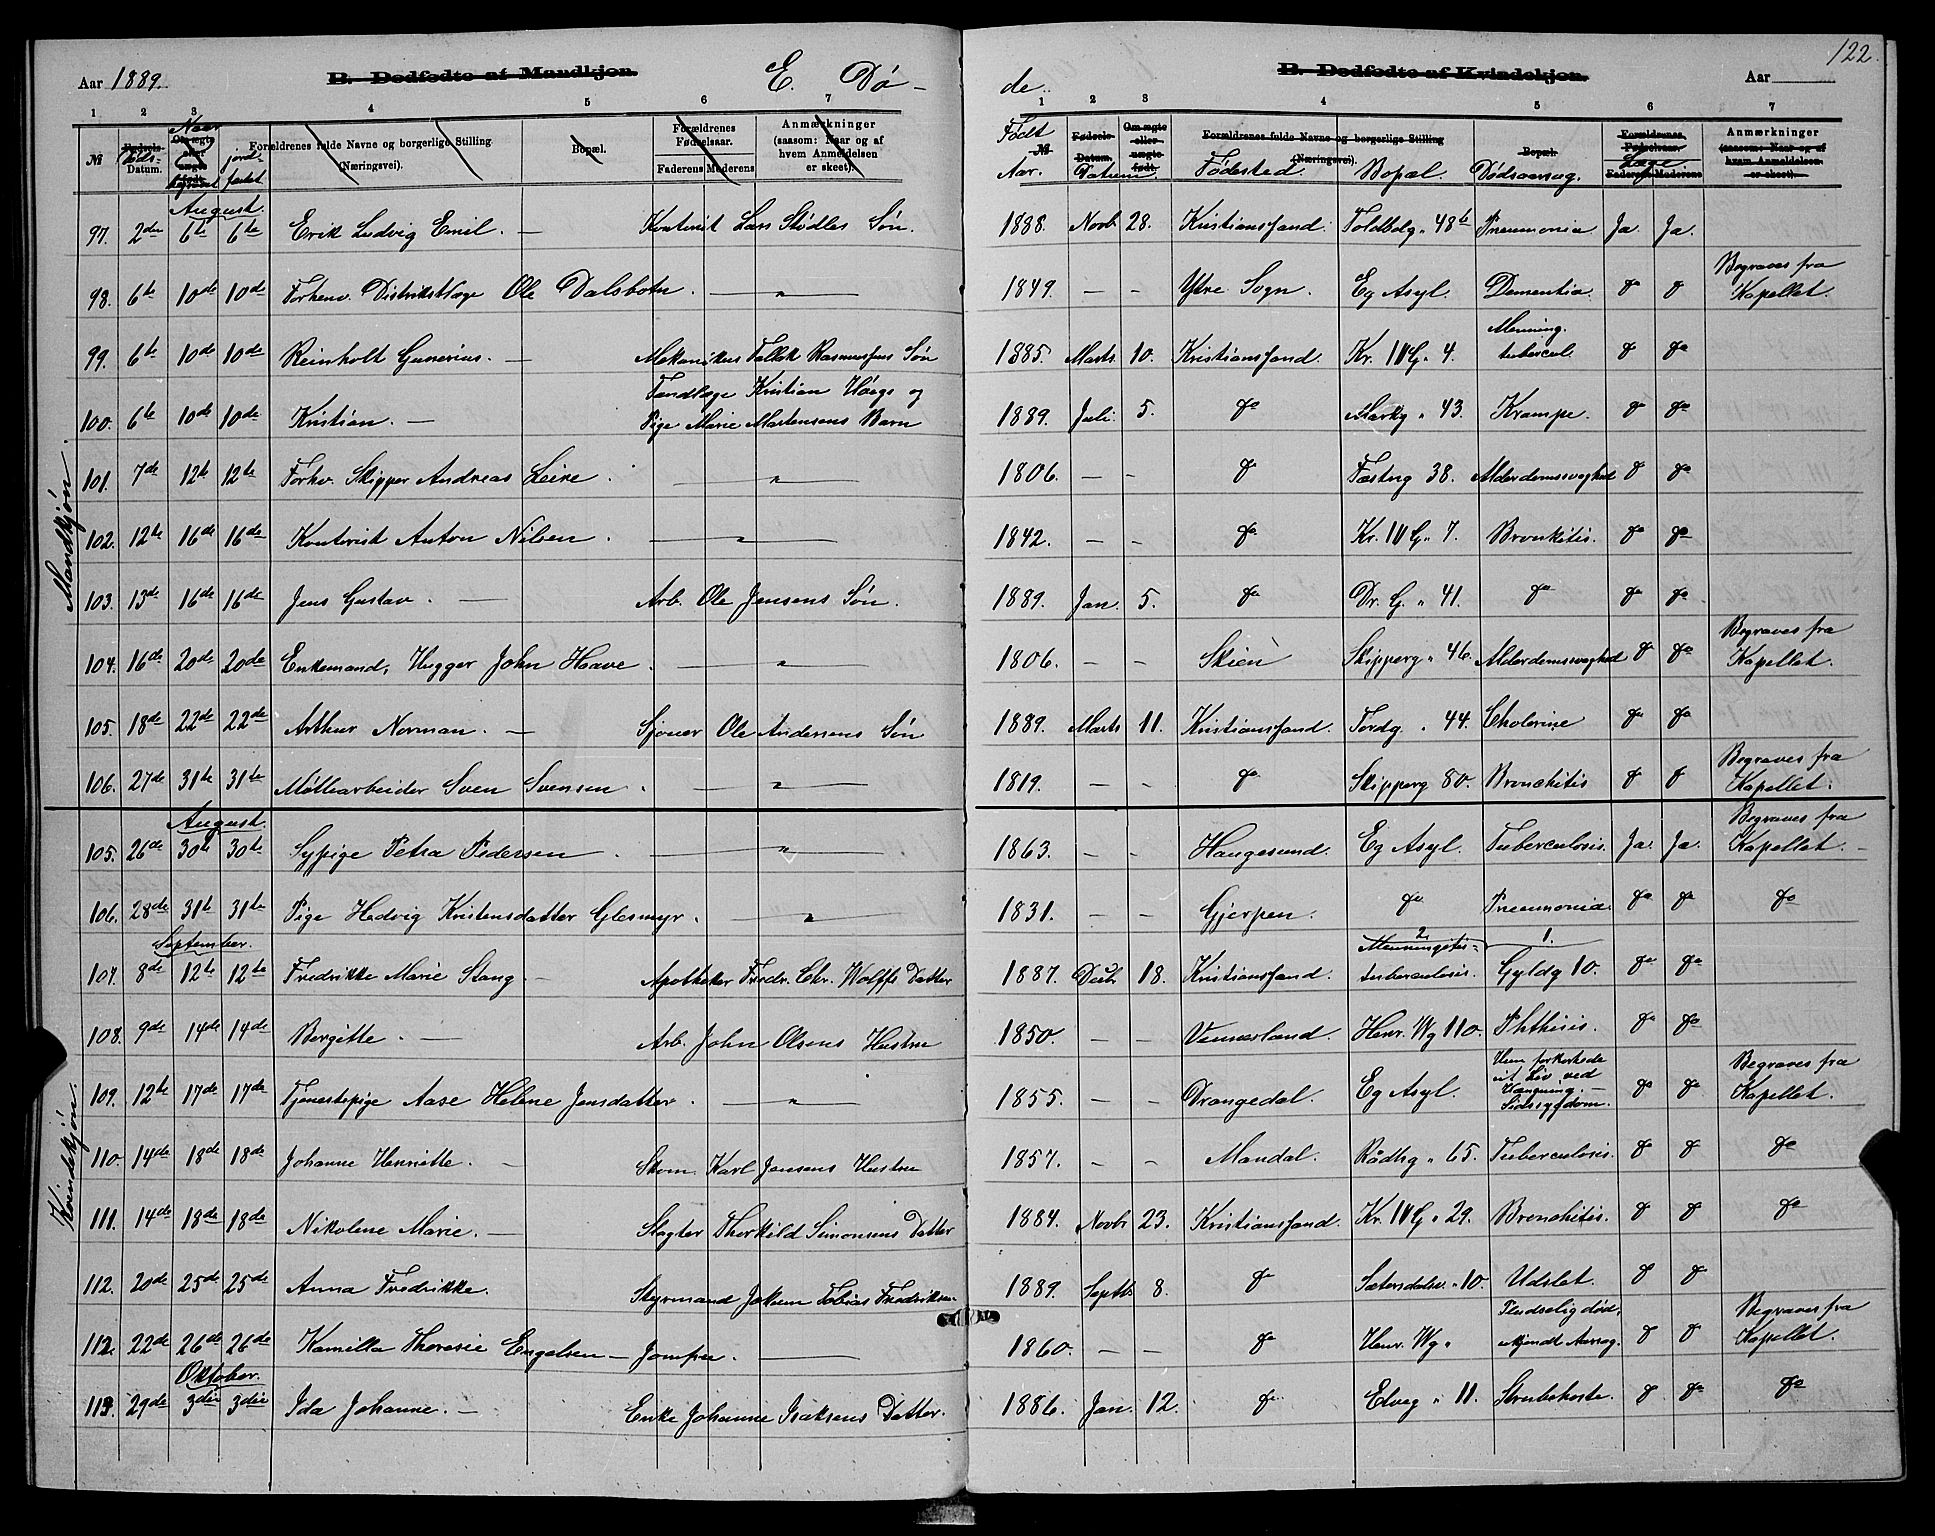 Aar 1889. B. Dødfødte af Mandkjøn. E. Dø-
de. B. Dødfødte af Kvindekjøn. Aar 122.
1 2 3 4 5 6 7
1 2 3 4 5 6 7
№ Fødsels- Døds- Datum. Naar Om ægte eller uægte født. jord- fæstet Forældrenes fulde Navne og borgerlige Stilling (Næringsvei). Bopæl. Forældrenes Fødselsaar. Faderens Moderens Anmærkninger (saasom: Naar og af hvem Anmeldelsen er skeet).
Født № Aar. Fødsels- Datum. Datum. Om ægte eller uægte født. Forældrenes fulde Navne og borgerlige Stilling (Næringsvei). Fødested Bopæl. Bopæl. Dødsaarsag. Forældrenes Fødselsaar. Læge Faderens Moderens Anmærkninger (saasom: Naar og af hvem Anmeldelsen er skeet).
Mandkjøn.
August.
97. 2den 6te 6te Erik Ludvig Emil. — Kontorist Lars Stødles Søn. 1888. Novb 28. Kristianssand. Toldbdg. 48b Pneumonia Ja. Ja.
98. 6te 10de 10de Forhenv. Distriktslæge Ole Dalsbotn. — " — 1849. - - Ytre Sogn. Eg Asyl. Dementia. do do Begraves fra Kapellet.
99. 6te 10de 10de Reinholt Gunerius. — Mekanikus Fallak Rasmussens Søn 1885. Marts 10. Kristianssand. Kr. IV G. 4. Menning. tubercul. do do
100. 6te 10de 10de Kristian. — Tandlæge Kristian Høegs og Pige Marie Martensens Barn 1889. Juli. 5. do Markg. 43. Krampe. do do
101. 7de 12te 12te Forhv. Skipper Andreas Leire. — " — 1806. - - do Fæstng 38. Alderdomssvaghed do do
102. 12te 16de 16de Kontorist Anton Nilsen. — " — 1842. - - do Kr. IV G. 7. Bronkitis. do do
103. 13de 16de 16de Jens Gustav. — Arb. Ole Jensens Søn. 1889. Jan. 5. do Dr. G. " 41. do do do
104. 16de 20de 20de Enkemand, Hugger John Haave. — " — 1806. - - Skien Skipperg. 46. Alderdomssvaghed do do Begraves fra Kapellet.
105. 18de 22de 22de Arthur Norman. — Sjøner Ole Andersens Søn 1889. Marts 11. Kristianssand. Tordg. 44. Cholerine do do
106. 27de 31te 31te Møllearbeider Sven Svensen. — " — 1819. - - do Skipperg 80. Bronchitis do do Begraves fra Kapellet.
Kvindekjøn.
August.
105. 26de 30te 30te Sypige Petra Pedersen. — " — 1863. - - Haugesund. Eg Asyl. Tuberculosis. Ja. Ja. Begraves fra Kapellet. -
106. 28de 31te 31te Pige Hedvig Kristensdatter Glesmyr. — " — 1831. - - Gjerpen. do Pneumonia. do do do
September.
107. 8de 12te 12te Fredrikke Marie Stang — Apotheker Fredr. Chr. Wolffs Datter 1887. Decbr 18. Kristianssand. 2. Menningitis- tuberculosis. 1. Gyldg 10. do do
108. 9de 14de 14de Bergitte. — Arb. John Olsens Hustru 1850. - - Vennersland. Henr. Wg 110. Phthisis. do do
109. 12te 17de 17de Tjenestepige Aase Helene Jensdatter. — " — 1855. - - Drangedal. Eg Asyl. Hun forkortede sit Liv ved Hængning. - Sidssygdom. do do Begraves fra Kapellet.
110. 14de 18de 18de Johanne Henriette. — Skom. Karl Jensens Hustru 1857. - - Mandal. Rådhg " 65. Tuberculosis. do do do
111. 14de 18de 18de Nikolene Marie. — Slagter Thorkild Simonsens Datter 1884. Novbr 23. Kristianssand. Kr. IV G. " 29. Bronchitis. do do do
112. 20de 25de 25de Anna Fredrikke. Styrmand Jokum Tobias Fredriksen 1889. Septb 8. do Sætersdalsv. " 10. Udslet. do do
112. 22de 26de 26de Kamilla Theresie Engelsen — Jomfru. — 1860. - - do Henr. Wg " Pludselig død, ukjendt Aarsag. do do Begraves fra Kapellet.
Oktober.
113. 29de 3die 3die Ida Johanne. — Enke Johanne Isaksens Datter. 1886. Jan. 12. do Elveg " 11. Strubehoste. do do do